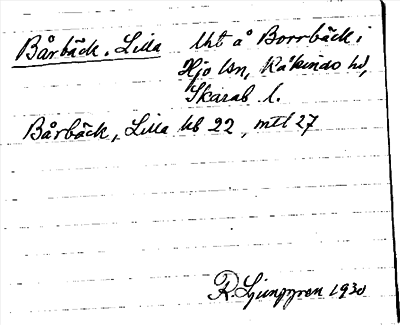 Bårbäck, Lilla Uht å Borrbäck i
Hjo lsn, Kåkinds hd,
Skarab. l.
Bårbäck, Lilla kb 22, mtl 27
R. Ljunggren 1930